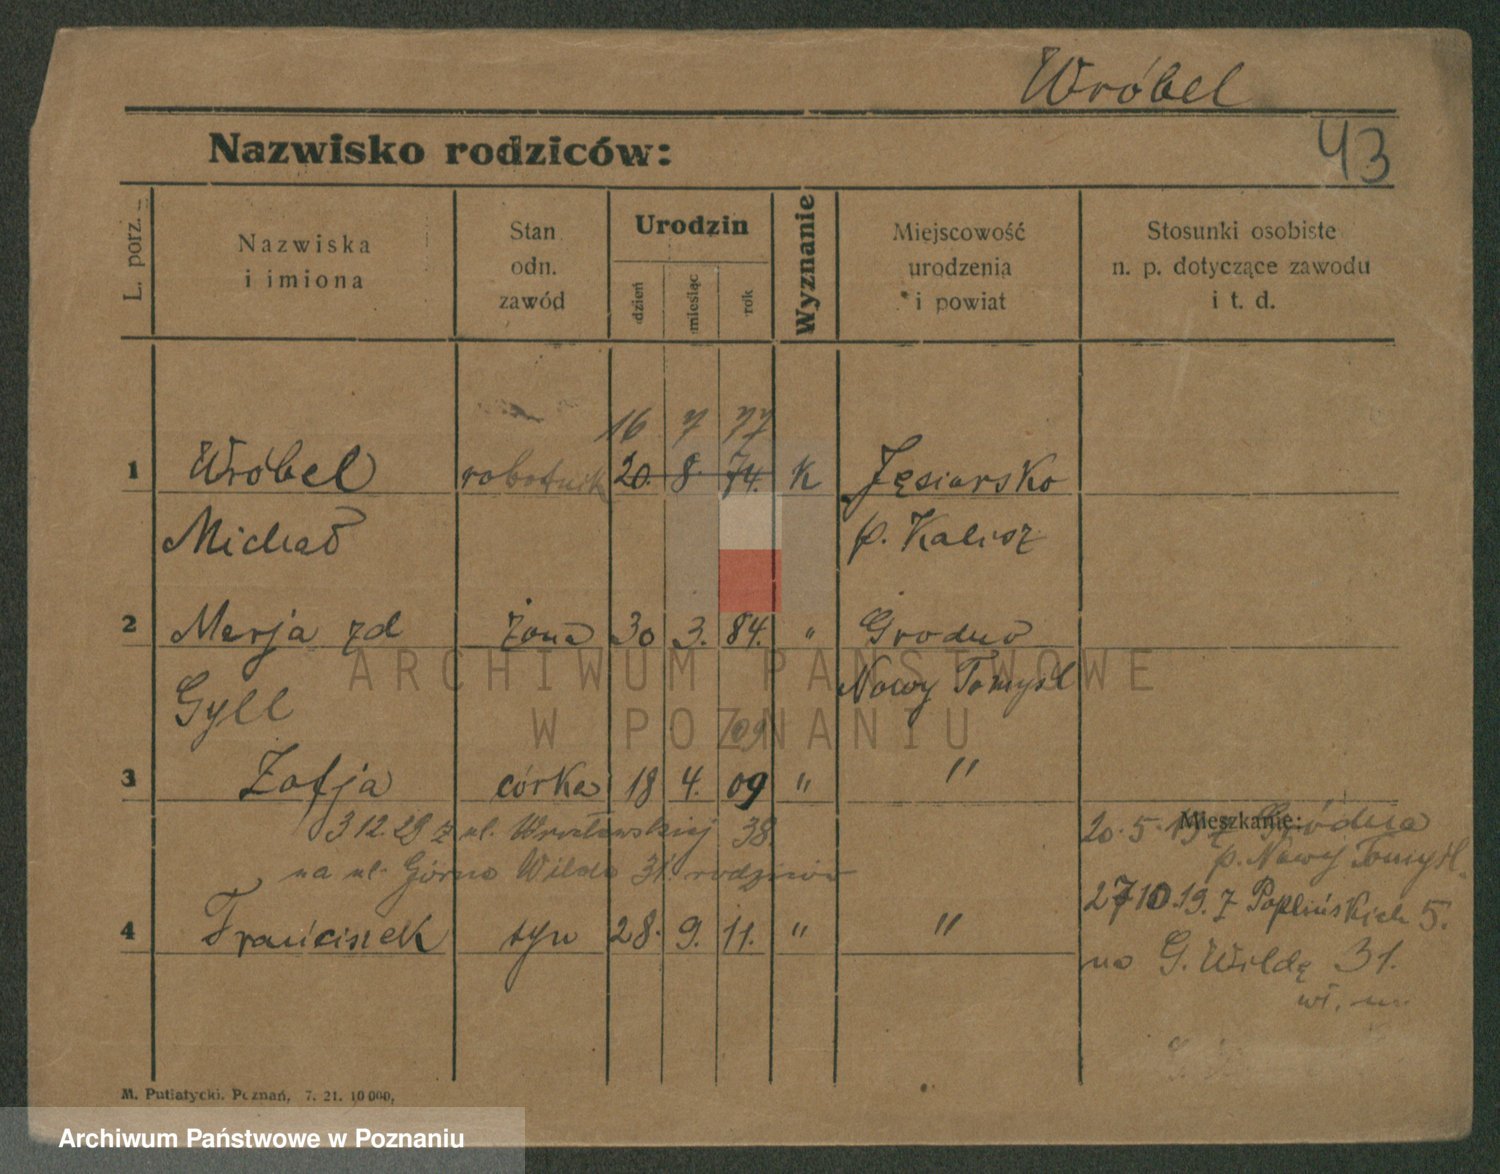 Wróbel
Nazwisko rodziców:
43
L. porz.
Nazwiska
i imiona
Stan
odn.
zawód
Urodzin
dzień
miesiąc
rok
Wyznanie
Miejscowość
urodzenia
i powiat
Stosunki osobiste
n. p. dotyczące zawodu
i t. d.
16 7 77
1 Wróbel robotnik 20. 8. 74. K
Michał p. Kalisz
2 Marja zd żona 30 3. 84. "
Gyll Nowy Tomyśl
09
3 Zofja córka 18 4. 09 " "
3 12. 29 z ul. Wrocławskiej 38
Mieszkanie:
20. 5. 19 z
na ul. Górna Wilda 31. rodziców
p. Nowy Tomyśl.
27 10. 19. z Poplińskich 5.
4 Franciszek syn 28. 9. 11. " "
na G. Wildę 31.
M. Putiatycki. Poznań, 7. 21. 10 000,
ARCHIWUM PAŃSTWOWE
W POZNANIU
Archiwum Państwowe w Poznaniu